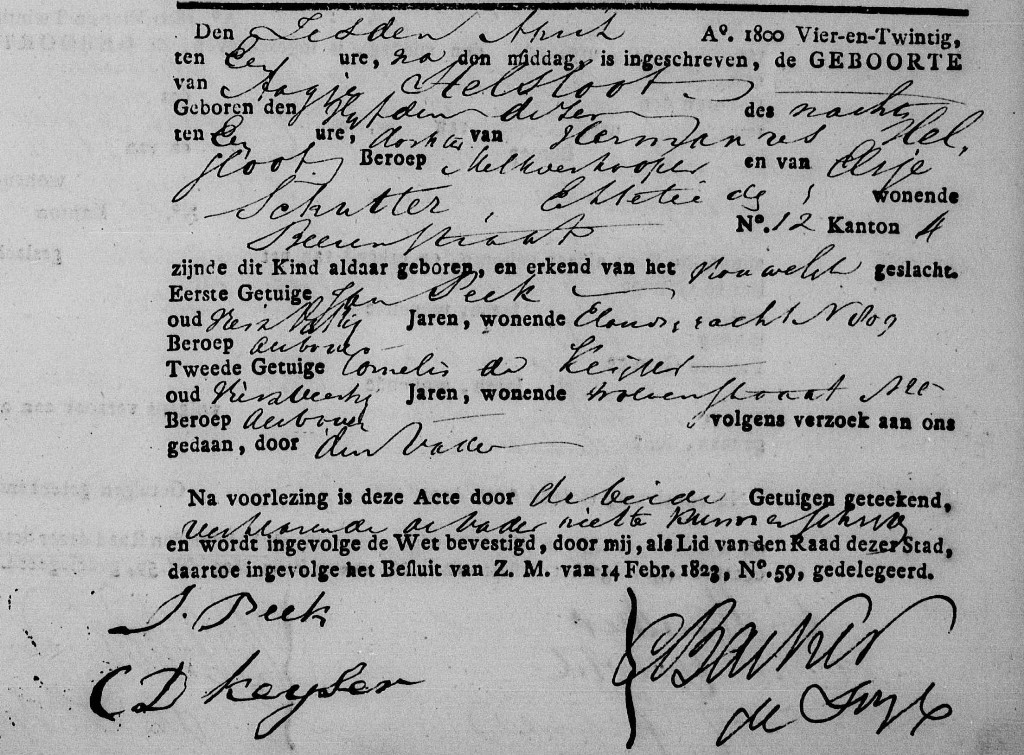 Den Zesden April Aº. 1800 Vier-en-Twintig,
ten Een ure, na den middag, is ingeschreven, de GEBOORTE
van Aagje Helsloot.
Geboren den Vyfden dezer des nachts
ten Een ure, dochter van Hermanus Hel,
sloot. Beroep Melkverkooper en van Elsje
Schutter, Echtelieden, wonende
Beerenstraat Nº. 12 Kanton 4
zijnde dit Kind aldaar geboren, en erkend van het Vrouwelyk geslacht.
Eerste Getuige Jan Peek
oud Jaren, wonende Elands gracht N 809
Beroep
Tweede Getuige Cornelis de Keijser
oud Jaren, wonende
Beroep volgens verzoek aan ons
gedaan, door den Vader
Na voorlezing is deze Acte door de beide Getuigen geteekend,
verklarende de vader niet te kunnen schryven
en wordt ingevolge de Wet bevestigd, door mij, als Lid van den Raad dezer Stad,
daartoe ingevolge het Besluit van Z. M. van 14 Febr. 1823, Nº. 59, gedelegeerd.
J. Peek
C D Keyser
Backer
de